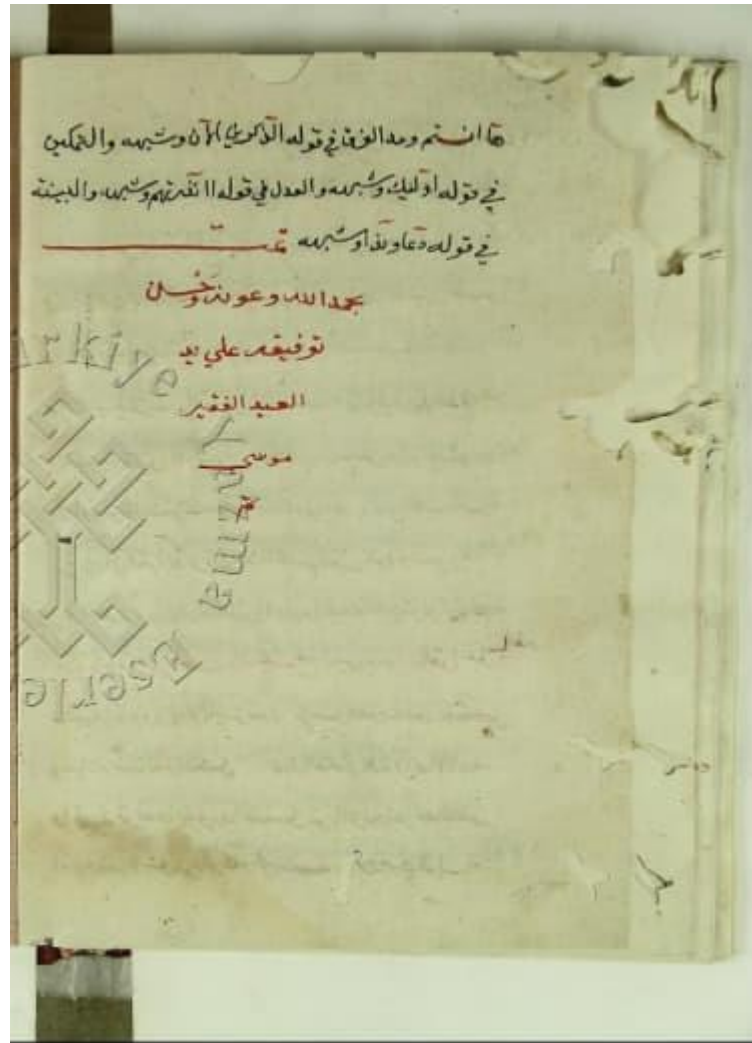 ها انتم ومد الفرق في قوله آلذكرين آلآن وشبهه والتمكين
في قوله اولئك وشبهه والعدل في قوله اانذرتهم وشبهه والبينته
في قوله دعاء ونداء وشبهه تمت
بحمد الله وعونه وحسن
توفيقه علي يد
العبد الفقير
موسي
تم
Türkiye Yazma Eserler